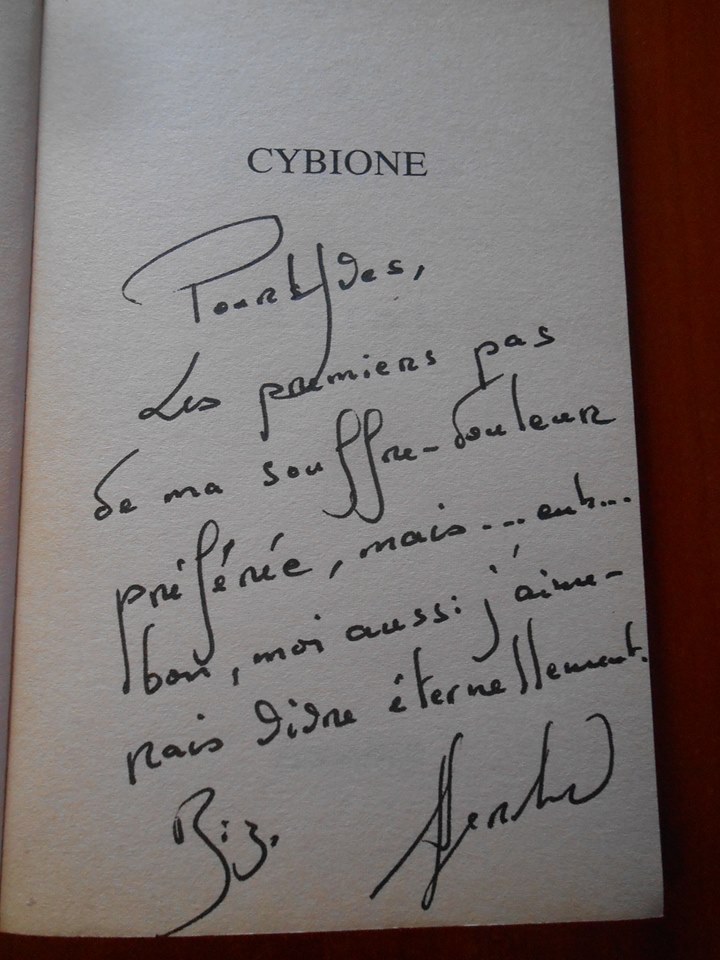 CYBIONE
Pour Yves,
Les premiers pas
de ma souffre-douleur
préférée, mais... euh...
bon, moi aussi j'aime-
rais vivre éternellement.
Biz.